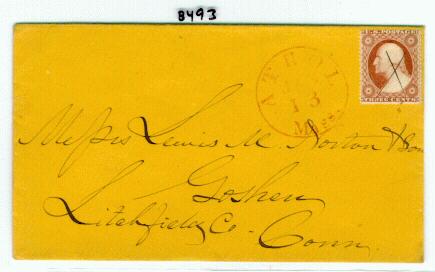 8493
U.S. POSTAGE
ATHOL
13
Mass.
THREE CENTS
Messrs Lewis M. Norton & Son
Goshen
Litchfield Co.
Conn.